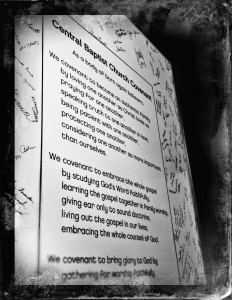 Central Baptist Church Covenant
As a body of born again believers,
We covenant to become an authentic family
by loving one another as Christ loves us,
praying for one another,
speaking truth to one another in love,
being patient with one another,
protecting one another,
considering one another as more important
than ourselves.
We covenant to embrace the whole gospel
by studying God's Word faithfully,
learning the gospel together in family worship,
giving ear only to sound doctrine,
living out the gospel in our lives,
embracing the whole counsel of God.
We covenant to bring glory to God
by gathering for worship faithfully,